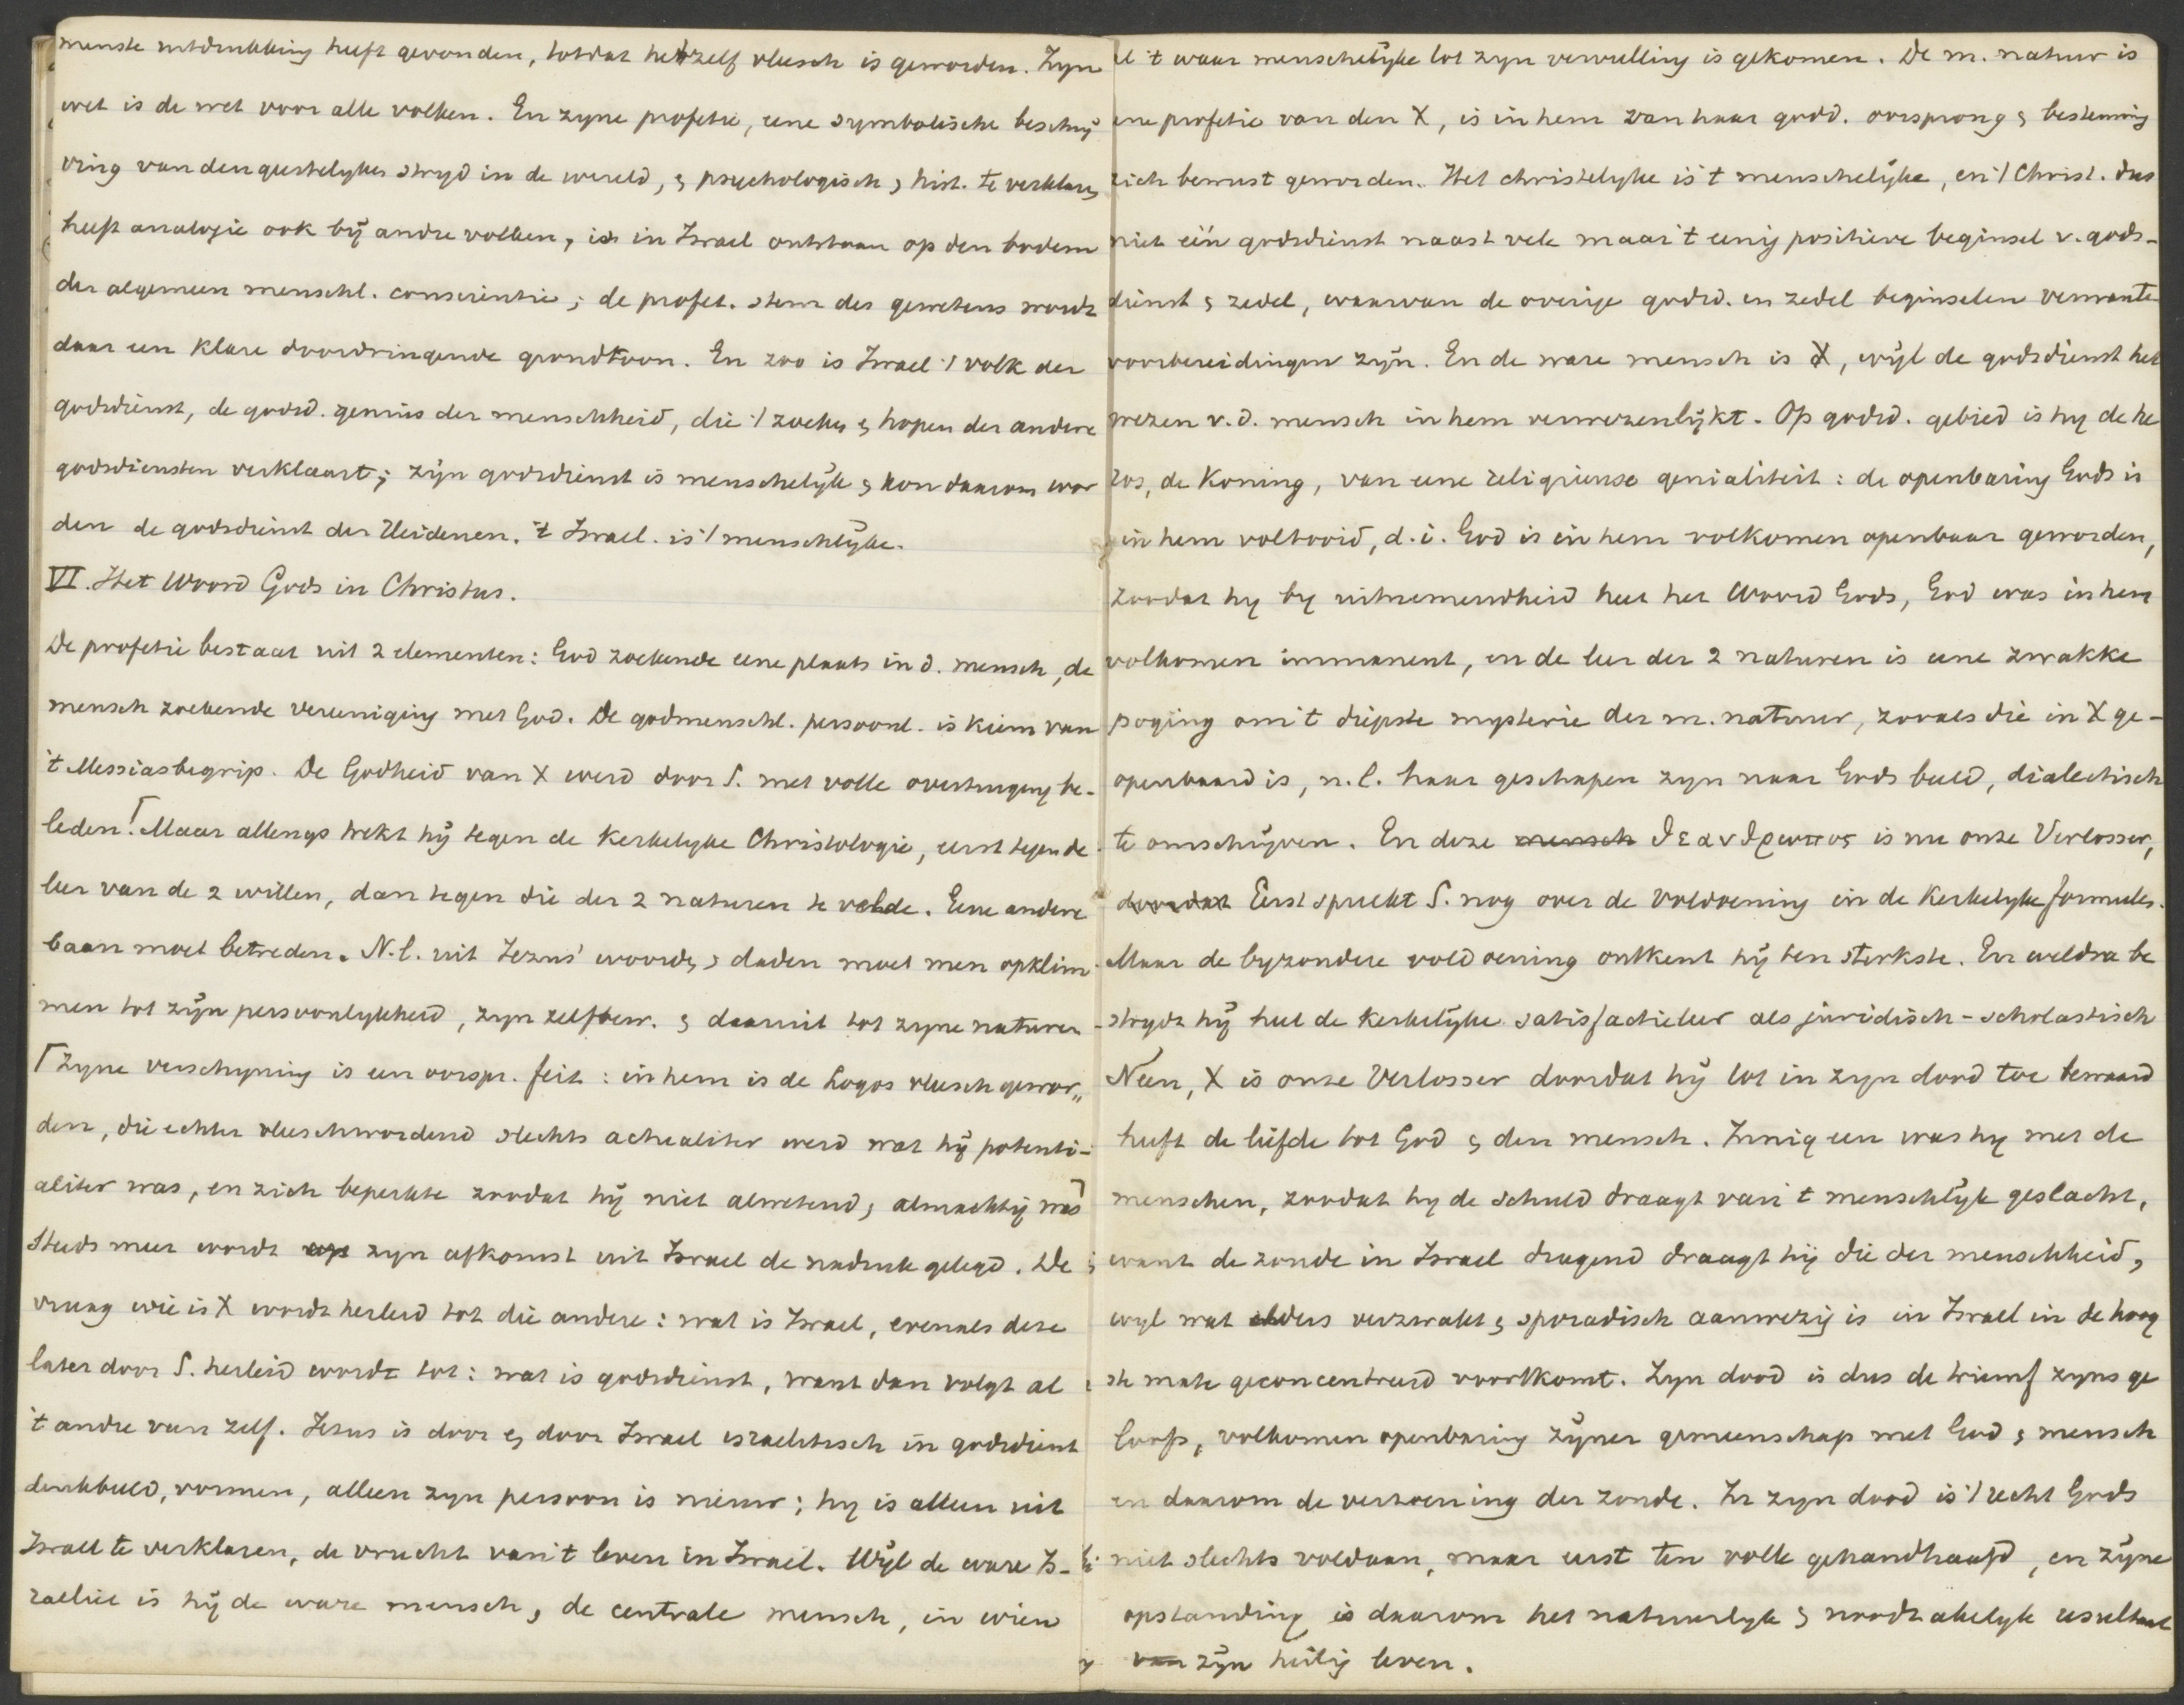 menste uitdrukking heeft gevonden, totdat hetzelf vleesch is geworden. Zijn
wet is de wet voor alle volken. En zyne profetie, eene symbolische beschrij
ving van den geestelyken stryd in de wereld, & psychologisch & hist. te verklaren,
heeft analogie ook bij andre volken, is in Israel ontstaan op den bodem
der algemeen menschl. conscientie; de profet. stem des gewetens wordt
daar een klare doordringende grondtoon. En zoo is Israel 't volk der
godsdienst, de godsd. genius der menschheid, die 't zoeken & hopen der andere
godsdiensten verklaart; zijn godsdienst is menschelijk & kon daarom wor
den de godsdienst der Heidenen. 't Israel. is 't menschlijke.
VI. Het Woord Gods in Christus.
De profetie bestaat uit 2 elementen: God zoekende eene plaats in d. mensch, de
mensch zoekende vereeniging met God. De godmenschl. persoonl. is kiem van
't Messiasbegrip. De Godheid van X werd door S. met volle overtuiging be-
leden.⌈ Maar allengs trekt hij tegen de Kerkelyke Christologie, eerst tegen de
leer van de 2 willen, dan tegen die der 2 naturen te velde. Eene andere
baan moet betreden. N.l. uit Jezus' woorden & daden moet men opklim-
men tot zijn persoonlykheid, zyn zelfbew. & daaruit tot zyne naturen
⌈Zyne verschyning is een oorspr. feit: in hem is de Logos vleesch gewor„
den, die echter vleeschwordend slechts actualiter werd wat hij potenti-
aliter was, en zich beperkte zoodat hij niet alwetend, almachtig was⌉
Steeds meer wordt op zyn afkomst uit Israel de nadruk gelegd. De
vraag wie is X wordt herleid tot die andere: wat is Israel, evenals deze
later door S. herleid wordt tot: wat is godsdienst, want dan volgt al
't andre van zelf. Jezus is door & door Israel israelitisch in godsdienst
denkbeeld, vormen, alleen zyn persoon is nieuw; hy is alleen uit
Israel te verklaren, de vrucht van 't leven in Israel. Wijl de ware Is-
raeliet is hij de ware mensch, de centrale mensch, in wien
al 't waar menschelijke tot zyn vervulling is gekomen. De m. natuur is
eene profetie van den X, is in hem van haar godd. oorsprong & bestemming
zich bewust geworden. Het christelyke is 't menschelijke, en 't Christ. dus
niet één godsdienst naast vele maar 't eenig positieve beginsel v. gods-
dienst & zedel, waarvan de overige godsd. en zedel beginselen verwante
voorbereidingen zijn. En de ware mensch is X, wijl de godsdienst het
wezen v.d. mensch in hem verwezenlijkt. Op godsd. gebied is hy de he
ros, de Koning, van eene religieuse genialiteit: de openbaring Gods is
in hem voltooid, d.i. God is in hem volkomen openbaar geworden,
zoodat hy by uitnemendheid heet het Woord Gods, God was in hem
volkomen immanent, en de leer der 2 naturen is eene zwakke
poging om 't diepste mysterie der m. natuur, zooals die in X ge-
openbaard is, n.l. haar geschapen zyn naar Gods beeld, dialectisch
te omschrijven. En deze mensch θεανθρωπος is nu onze Verlosser,
doordat Eerst spreekt S. nog over de voldoening in de Kerkelyke formules.
Maar de byzondere voldoening ontkent hij ten sterkste. En weldra be
strydt hij heel de Kerkelijke satisfactieleer als juridisch-scholastisch
Neen, X is onze Verlosser doordat hij tot in zyn dood toe bewaard
heeft de liefde tot God & den mensch. Innig een was hy met de
menschen, zoodat hy de schuld draagt van 't menschlijk geslacht,
want de zonde in Israel dragend draagt hij die der menschheid,
wyl wat elders verzwakt & sporadisch aanwezig is in Israel in de hoog
ste mate geconcentreerd voorkomt. Zyn dood is dus de triumf zyns ge
loofs, volkomen openbaring zijner gemeenschap met God & mensch
en daarom de verzoening der zonde. In zyn dood is 't recht Gods
niet slechts voldaan, maar eerst ten volle gehandhaafd, en zijne
opstanding is daarom het natuurlyk & noodzakelyk resultaat
van zijn heilig leven.